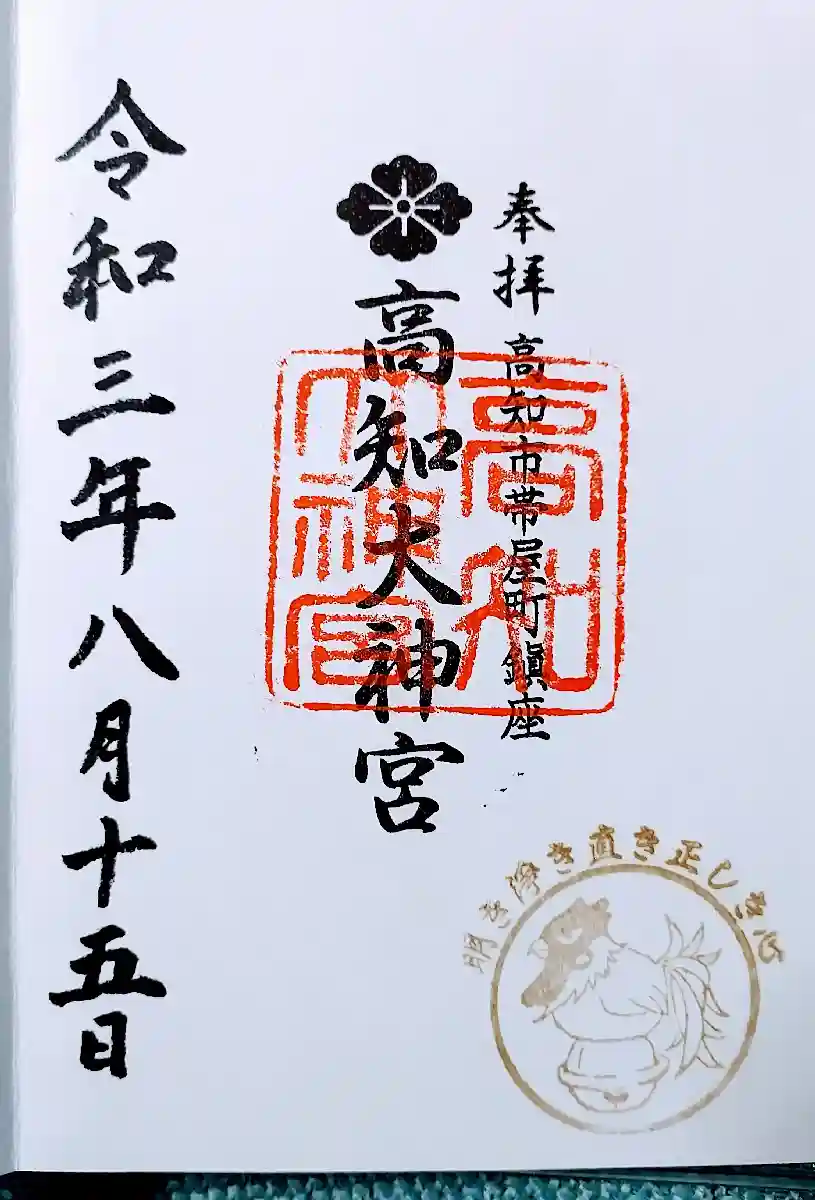 奉拝 高知市帯屋町鎮座
高知大神宮
令和三年八月十五日
高知
大神宮
明き浄き直き正しき心